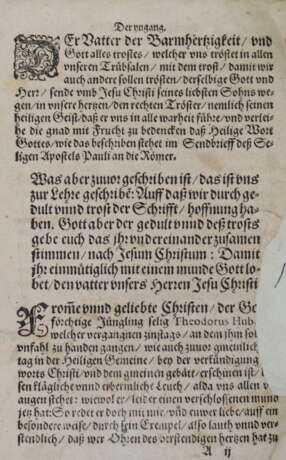 Der yngang.
DEr Vatter der Barmhertzigkeit / vnd
Gott alles trostes / welcher vns tröstet in allen
vnseren Trübsalen / mit dem trost / damit wir
auch andere sollen trösten / derselbige Gott vnd
Herr / sende vmb Jesu Christi seines liebsten Sohns we-
gen / in vnsere hertzen / den rechten Tröster / nemlich seinen
heiligen Geist / daß er vns in alle warheit führe / vnd verlei-
he die gnad mit Frucht zu bedencken daß Heilige Wort
Gottes / wie das beschriben stehet im Sendbrieff deß Se-
ligen Apostels Pauli an die Römer.
Was aber zuuor geschriben ist / das ist vns
zur Lehre geschribē: Auff daß wir durch ge-
dult vnnd trost der Schrifft / hoffnung ha-
ben. Gott aber der gedult vnnd deß trosts
gebe euch das jhr vndereinander zusamen
stimmen / nach Jesum Christum: Damit
jhr einmütiglich mit einem munde Gott lo-
bet / den vatter vnsers Herren Jesu Christi
FRomme vnnd geliebte Christen / der Ge
förchtige Jüngling selig Theodorus Hub
welcher vergangnen zinstags / an dem jhm sol
vnfahl zu handen gangen / wie auch zuuor gemeinlich
tag in der Heiligen Gemeine / bey der verkündigung
worts Christi / vnd dem gmeinen gebätt / erschinen ist /
sen klägliche vnnd erbermliche Leuch / alda vns allen v
augen stehet: wiewol er / leider einen verschlossenen mun
jen hat: So redet er doch mit mir / vnd euwer liebe / auff ein
besondere weise / durch sein Exempel / also lauth vnnd ver-
stendlich / daß wer Ohren des verstendigen hertzen hat zu
A ij